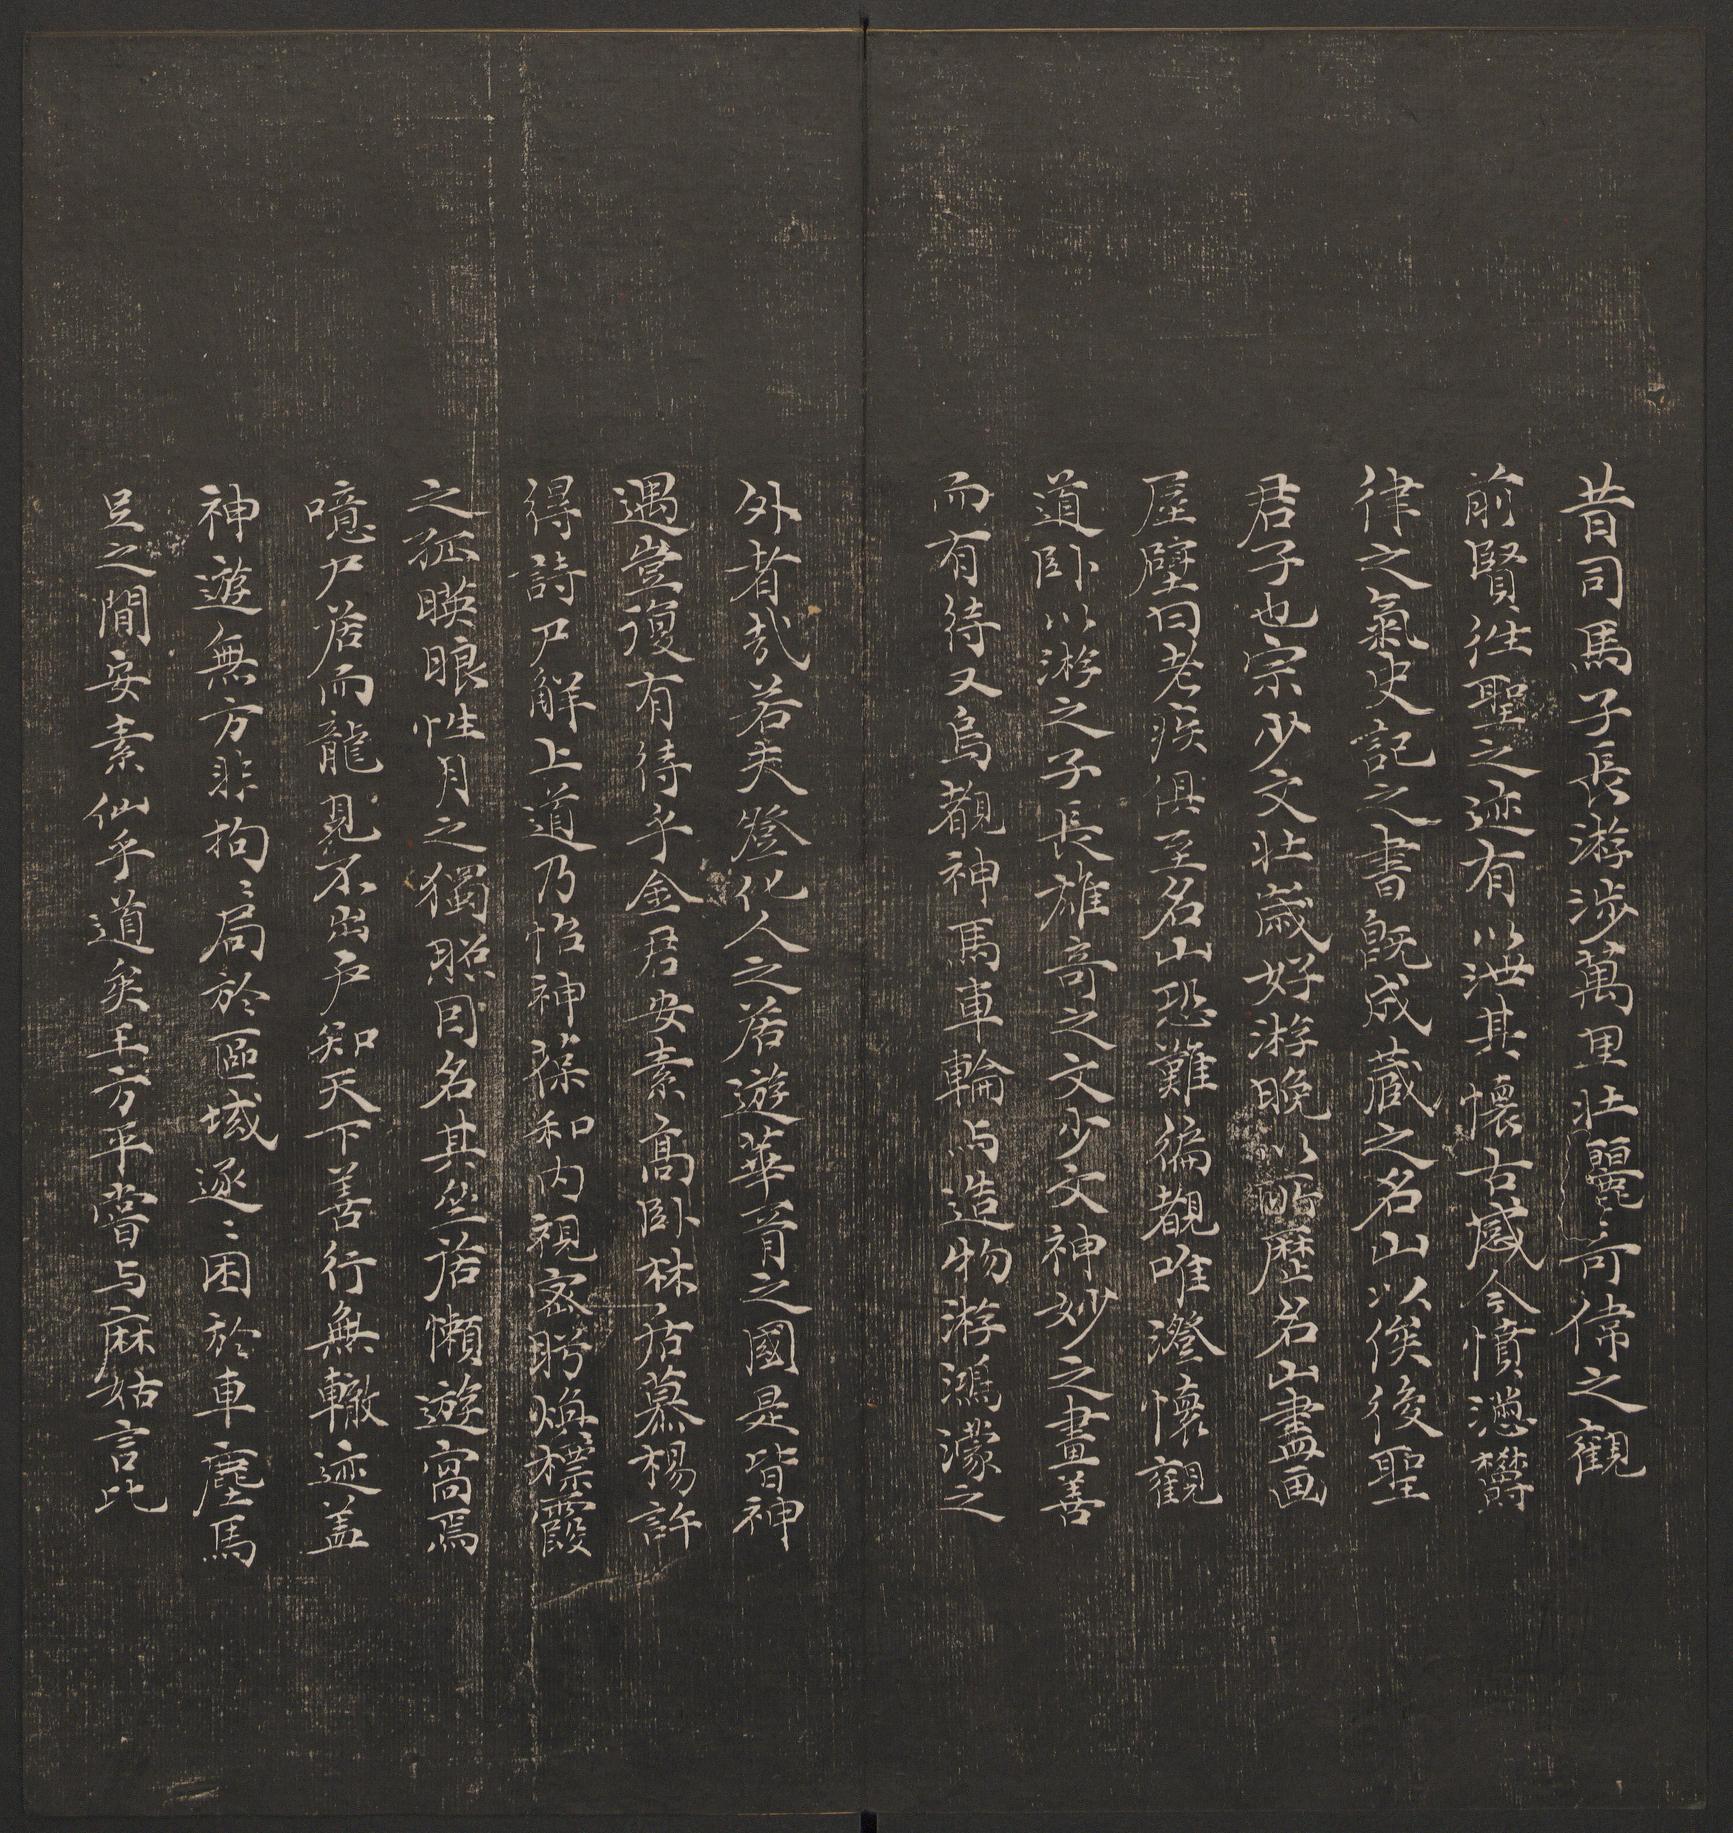 昔司馬子長游涉萬里壯麗可偉之觀
前賢徃聖之迹有以泄其懷古感今憤懣欝
律之氣史記之書既成蔵之名山以俟後聖
君子也宗少文壯歲好游晚以所歷名山盡画
屋壁曰老疾俱至名山恐難徧觀唯澄懷觀
道卧以游之子長雄奇之文少文神妙之畫善
而有待又烏觀神馬車輪与造物游鴻濛之
外者哉若夫登化人之居遊華胥之國是皆神
遇豈復有待乎金君安素高卧林居慕楊許
得詩尸解上道乃怡神葆和内視密盻煥標霞
之孤暎眼性月之獨照因名其坐居懶遊窩焉
噫尸居而龍見不出户知天下善行無轍迹盖
神遊無方非拘〻局於區域逐〻困於車塵馬
足之間安素仙乎道矣王方平嘗与麻姑言比